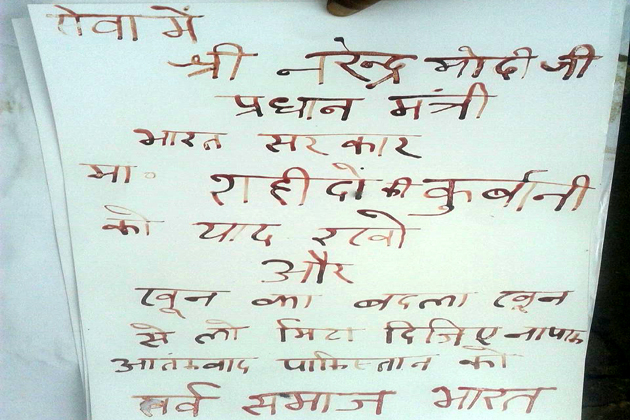 सेवा में
श्री नरेन्द्र मोदी जी
प्रधान मंत्री
भारत सरकार
मा. शहीदों की कुर्बानी
को याद रखो
और
खून का बदला खून
से लो मिटा दिजिए नापाक
आतंकवाद पाकिस्तान को
सर्व समाज भारत